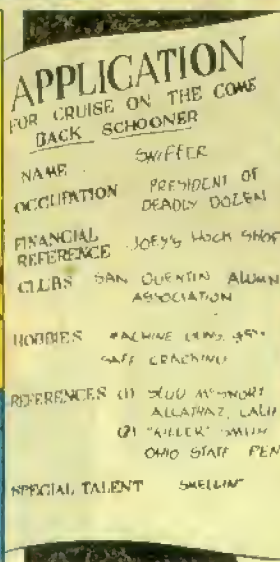 APPLICATION
FOR CRUISE ON THE COME
BACK SCHOONER
NAME SNIFFER
OCCUPATION PRESIDENT OF
DEADLY DOZEN
FINANCIAL
REFERENCE JOEY'S HOCK SHOP
CLUBS SAN QUENTIN ALUMNI
ASSOCIATION
HOBBIES MACHINE GUNS
SAFE CRACKING
REFERENCES (1) MCSNORT
ALCATRAZ, CALIF
(2) "KILLER" SMITH
OHIO STATE PEN
SPECIAL TALENT SMELLIN'